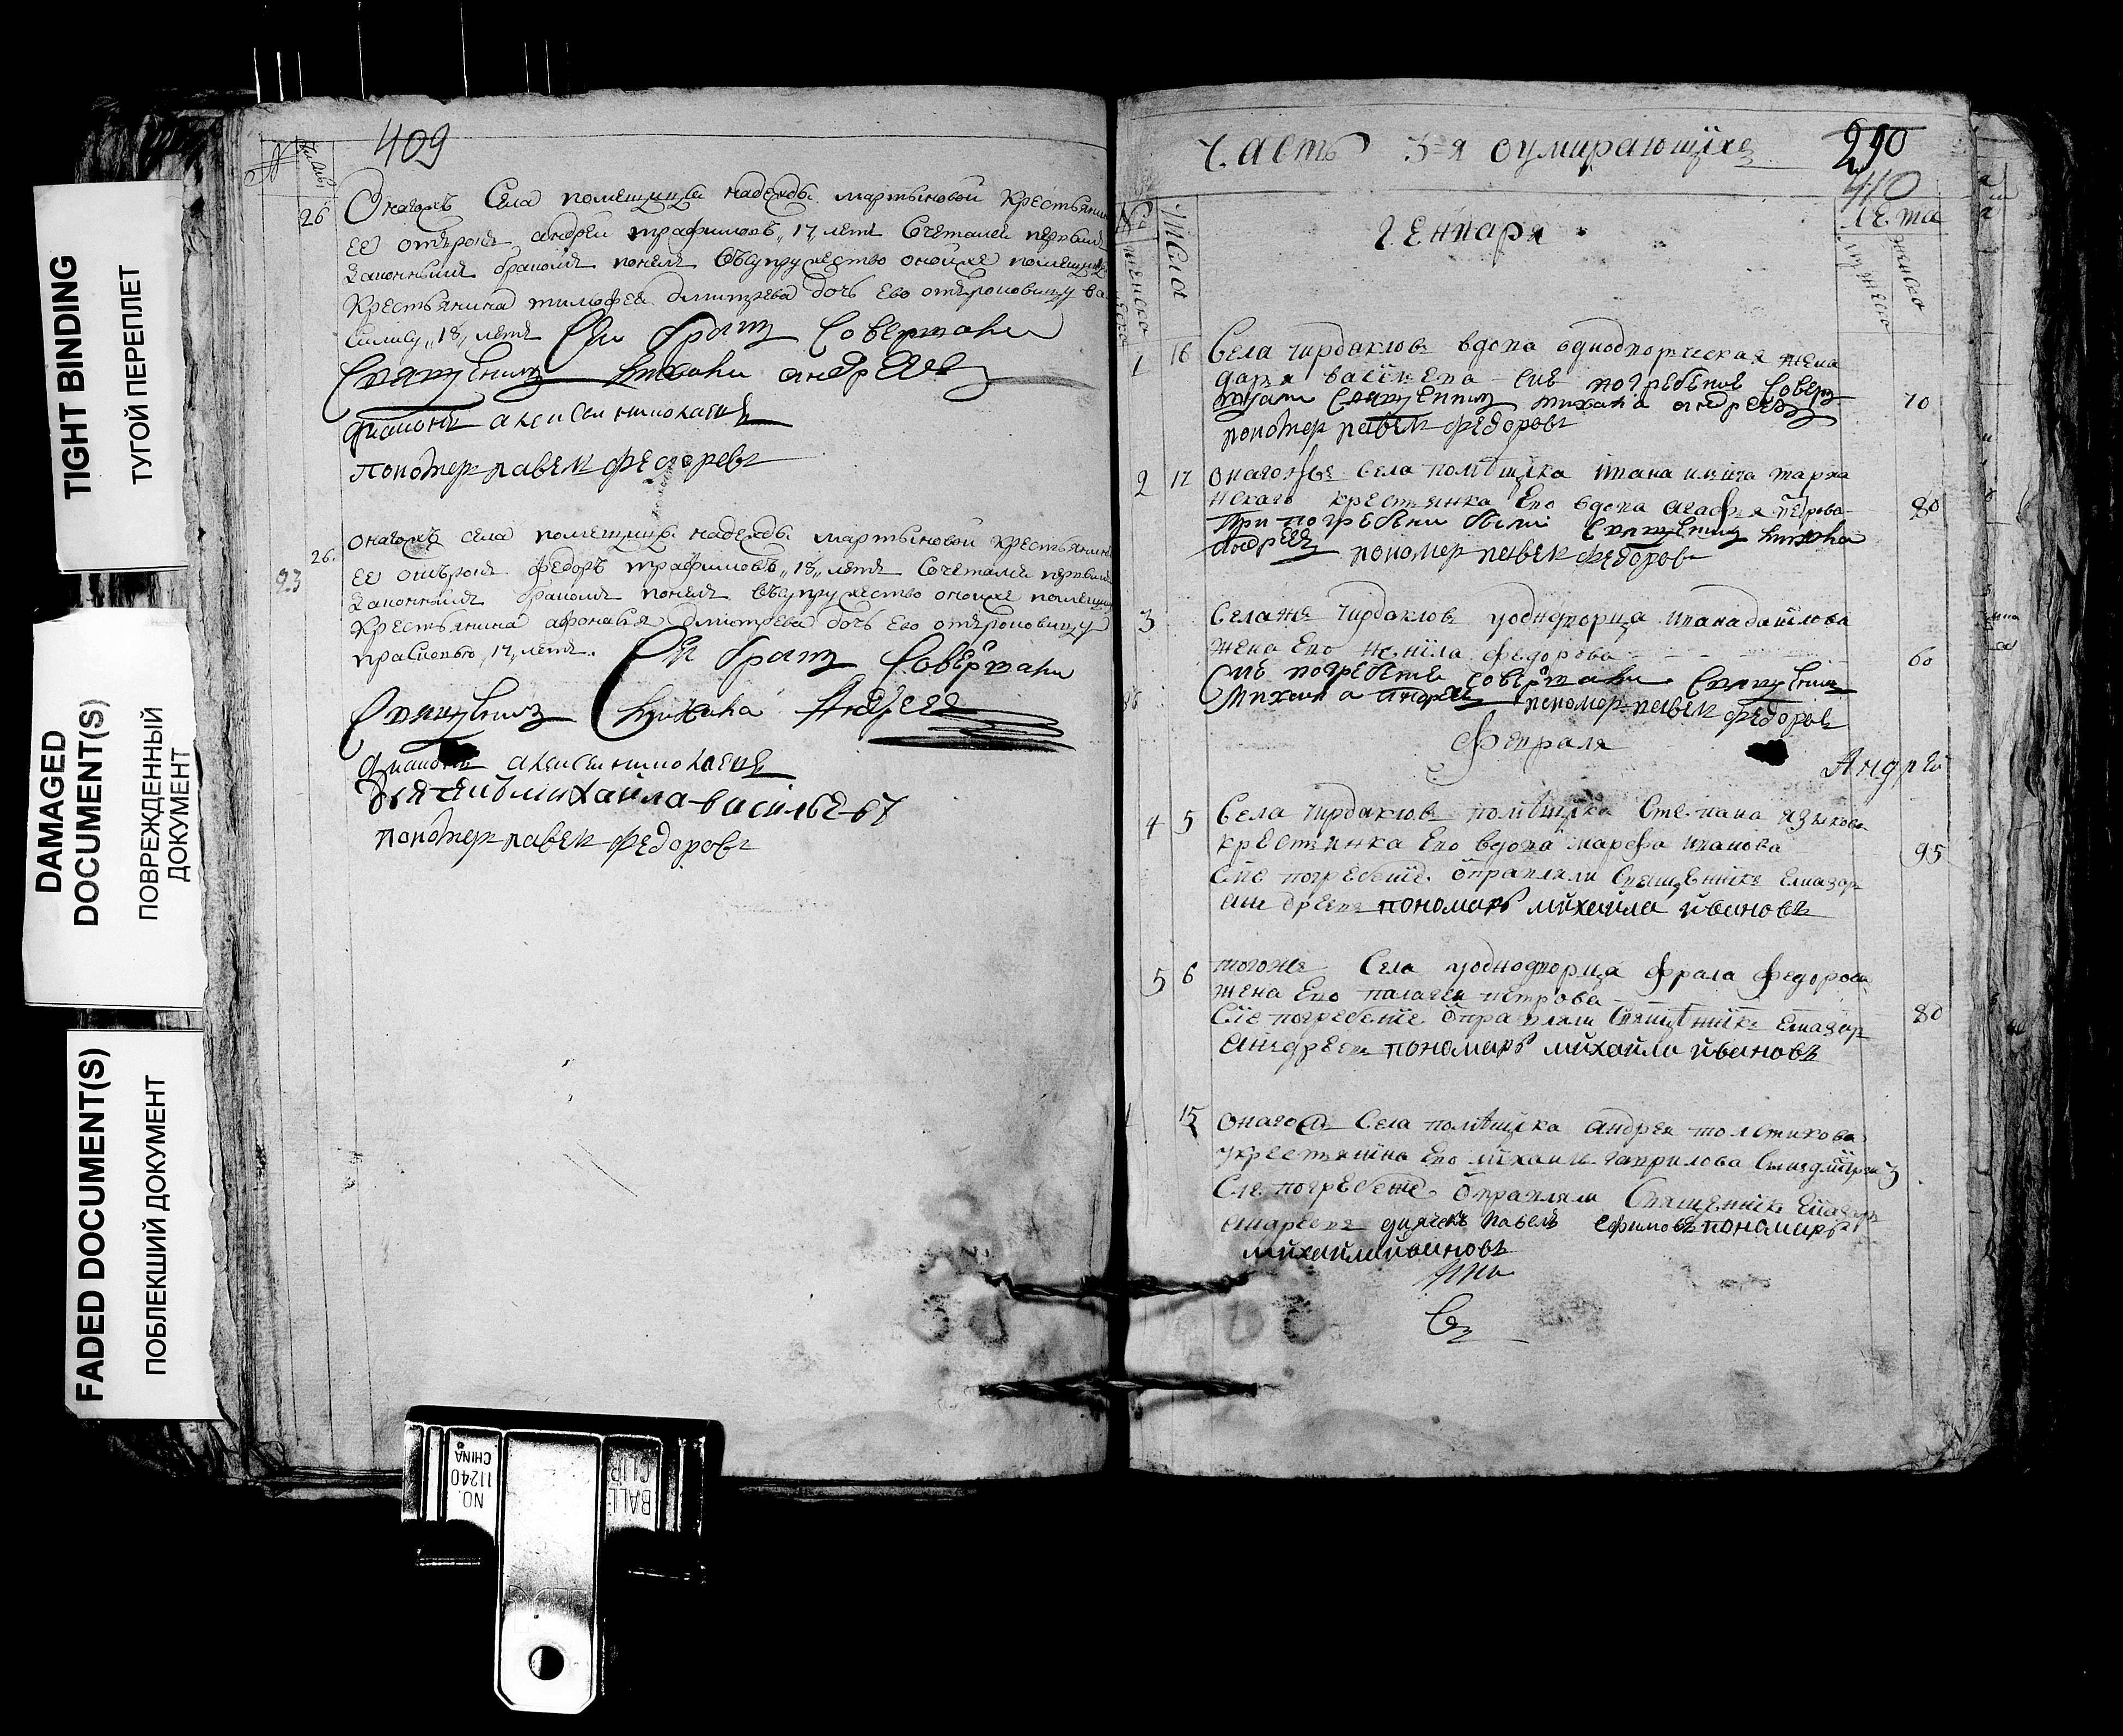 TIGHT BINDING
ТУГОЙ ПЕРЕПЛЕТ
DAMAGED
DOCUMENT(S)
ПОВРЕЖДЕННЫЙ
ДОКУМЕНТ
FADED DOCUMENT(S)
ПОБЛЕКШИЙ ДОКУМЕНТ
409
26 Онагожъ Села помещицы надежды мартыновой крестьянинъ
ее отърокъ андрей трафимовъ "17" летъ Сочетался первымъ
законнымъ бракомъ понелъ въсупружество оной же помещицы
крестьянина тимофея дмитрева дочь Ево отъроковицу ва
силису "18" летъ Сей бракъ Совершали
Священникъ андреевъ
диаконъ алексеи николаевъ
пономер павел федоровъ
23 26. онагожъ села помещицы надежды мартыновой крестьянинъ
ее отърокъ федоръ трафимовъ "18" летъ Сочетался первымъ
законнымъ бракомъ понелъ въсупружество оной же помещицы
крестьянина афонасья дмитрева дочь Ево отъроковицу
прасковью "17" летъ. Сей бракъ Совершали
Священникъ Андреевъ
диаконъ алексеи николаевъ
дьячекъ михаила васильевъ
пономер павел федоровъ
Часть 3я оумирающихъ
290
410
Генваря
лета
числа
1 16 Села чирдаклов вдова однодворческая жена
дарья васильева сие погребение Совер
шали Священникъ михаила андреевъ 70
пономер павел федоровъ
2 17 онагоже Села помѣщика ивана
крестьянка Ево вдова агафья петрова 80
При погребени были Священникъ михаила
андреевъ пономер павел федоровъ
3 Села же чирдаклов уоднодворца ивана данилова
жена Ево ненила федорова 60
Сие погребение совершали Священникъ
михаила андреевъ пономер павел федоровъ
Февраля
Андрей
4 5 Села чирдаклов помѣщика Степана языкова
крестьянка Ево вдова марфа иванова 95
Сие погребение отравляли Священникъ Елиазар
андреевъ пономарь михаила ивановъ
5 6 тогоже Села уоднодворца фрола федорова
жена Ево палагея петрова 80
Сие погребение отправляли Священникъ Елиазар
андреевъ пономарь михаила ивановъ
15 онаго Села помѣщика андрея
укрестьянина Ево михаила гаврилова Сынъ дмитрей 3
Сие погребение отправляли Священникъ Елиазар
андреевъ дьячекъ павелъ ефимовъ пономарь
михайла ивановъ
NO.
11240
CHINA
BALL
CLIP